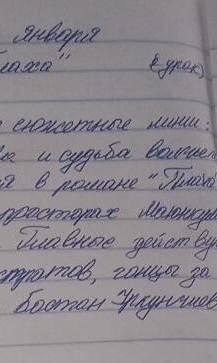 января
лаха" (урок)
сюжетные линии:
и судьба волчьей
я в романе "Плаха
просторах Моюнкум
Главные действу
стратов, гонцы за
Бостан Уркунчиев